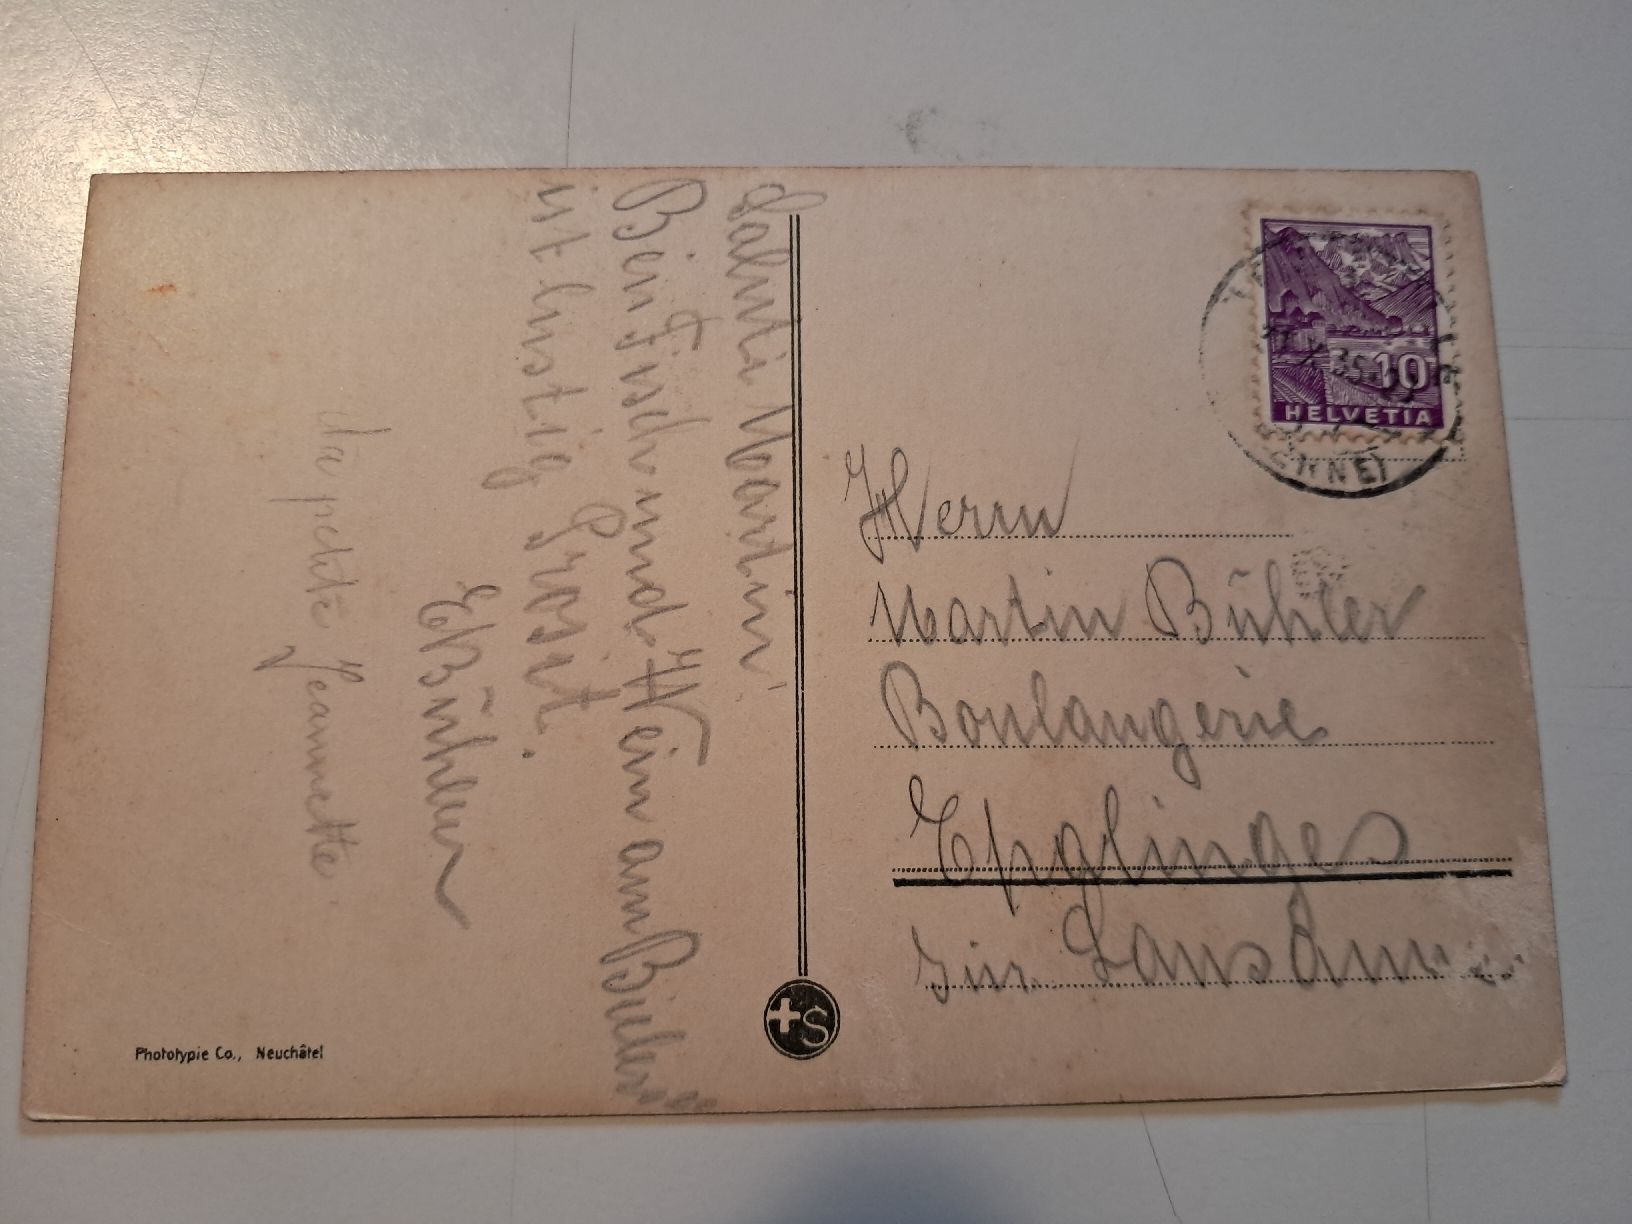 Salüti Martin!
Bein Fisch und Wein am Bielersee
ist lustig Prosit.
E Bühler
La petite Jeannette.
Herrn
Martin Bühler
Boulangerie
Epalinges
für Lausanne
HELVETIA
10
X 35
Phototypie Co., Neuchâtel
+S